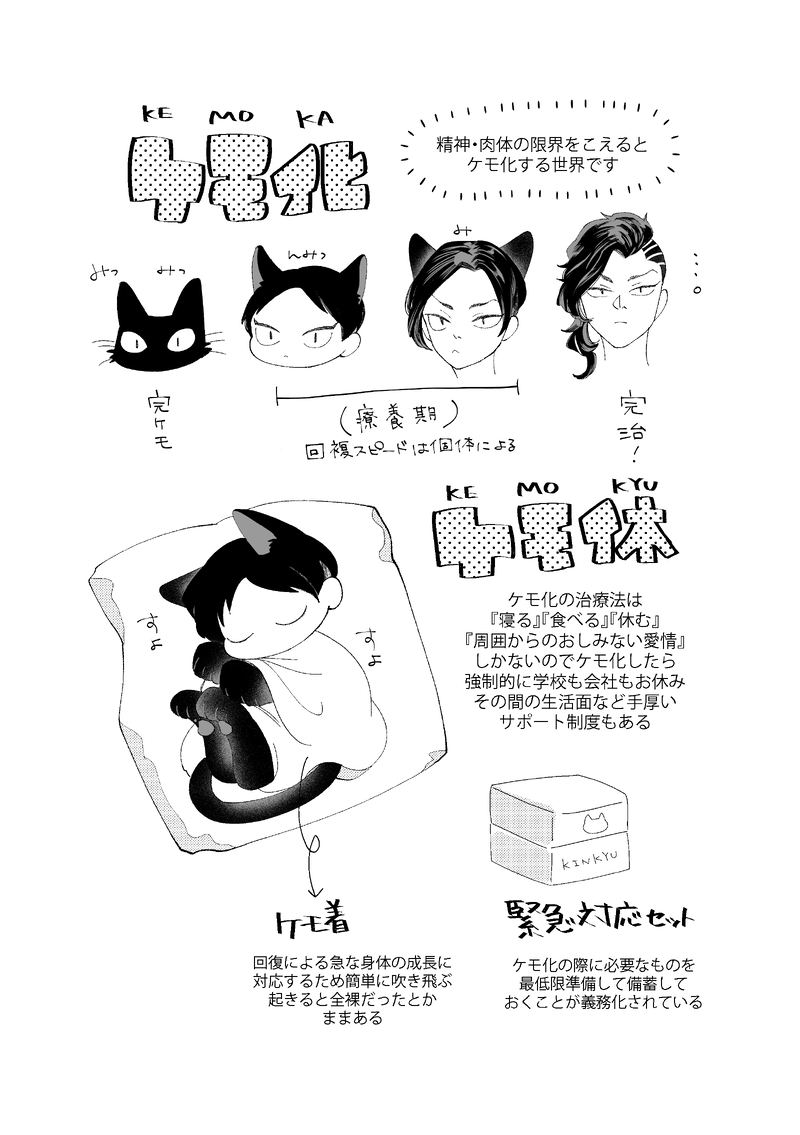 KE MO KA
ケモ化
精神・肉体の限界をこえると
ケモ化する世界です
みっ みっ
んみっ
み
完ケモ
(療養期)
回複スピードは個体による
完治!
KE MO KYU
ケモ休
ケモ化の治療法は
『寝る』『食べる』『休む』
『周囲からのおしみない愛情』
しかないのでケモ化したら
強制的に学校も会社もお休み
その間の生活面など手厚い
サポート制度もある
すよ
すよ
KINKYU
ケモ着
回復による急な身体の成長に
対応するため簡単に吹き飛ぶ
起きると全裸だったとか
ままある
緊急対応セット
ケモ化の際に必要なものを
最低限準備して備蓄して
おくことが義務化されている